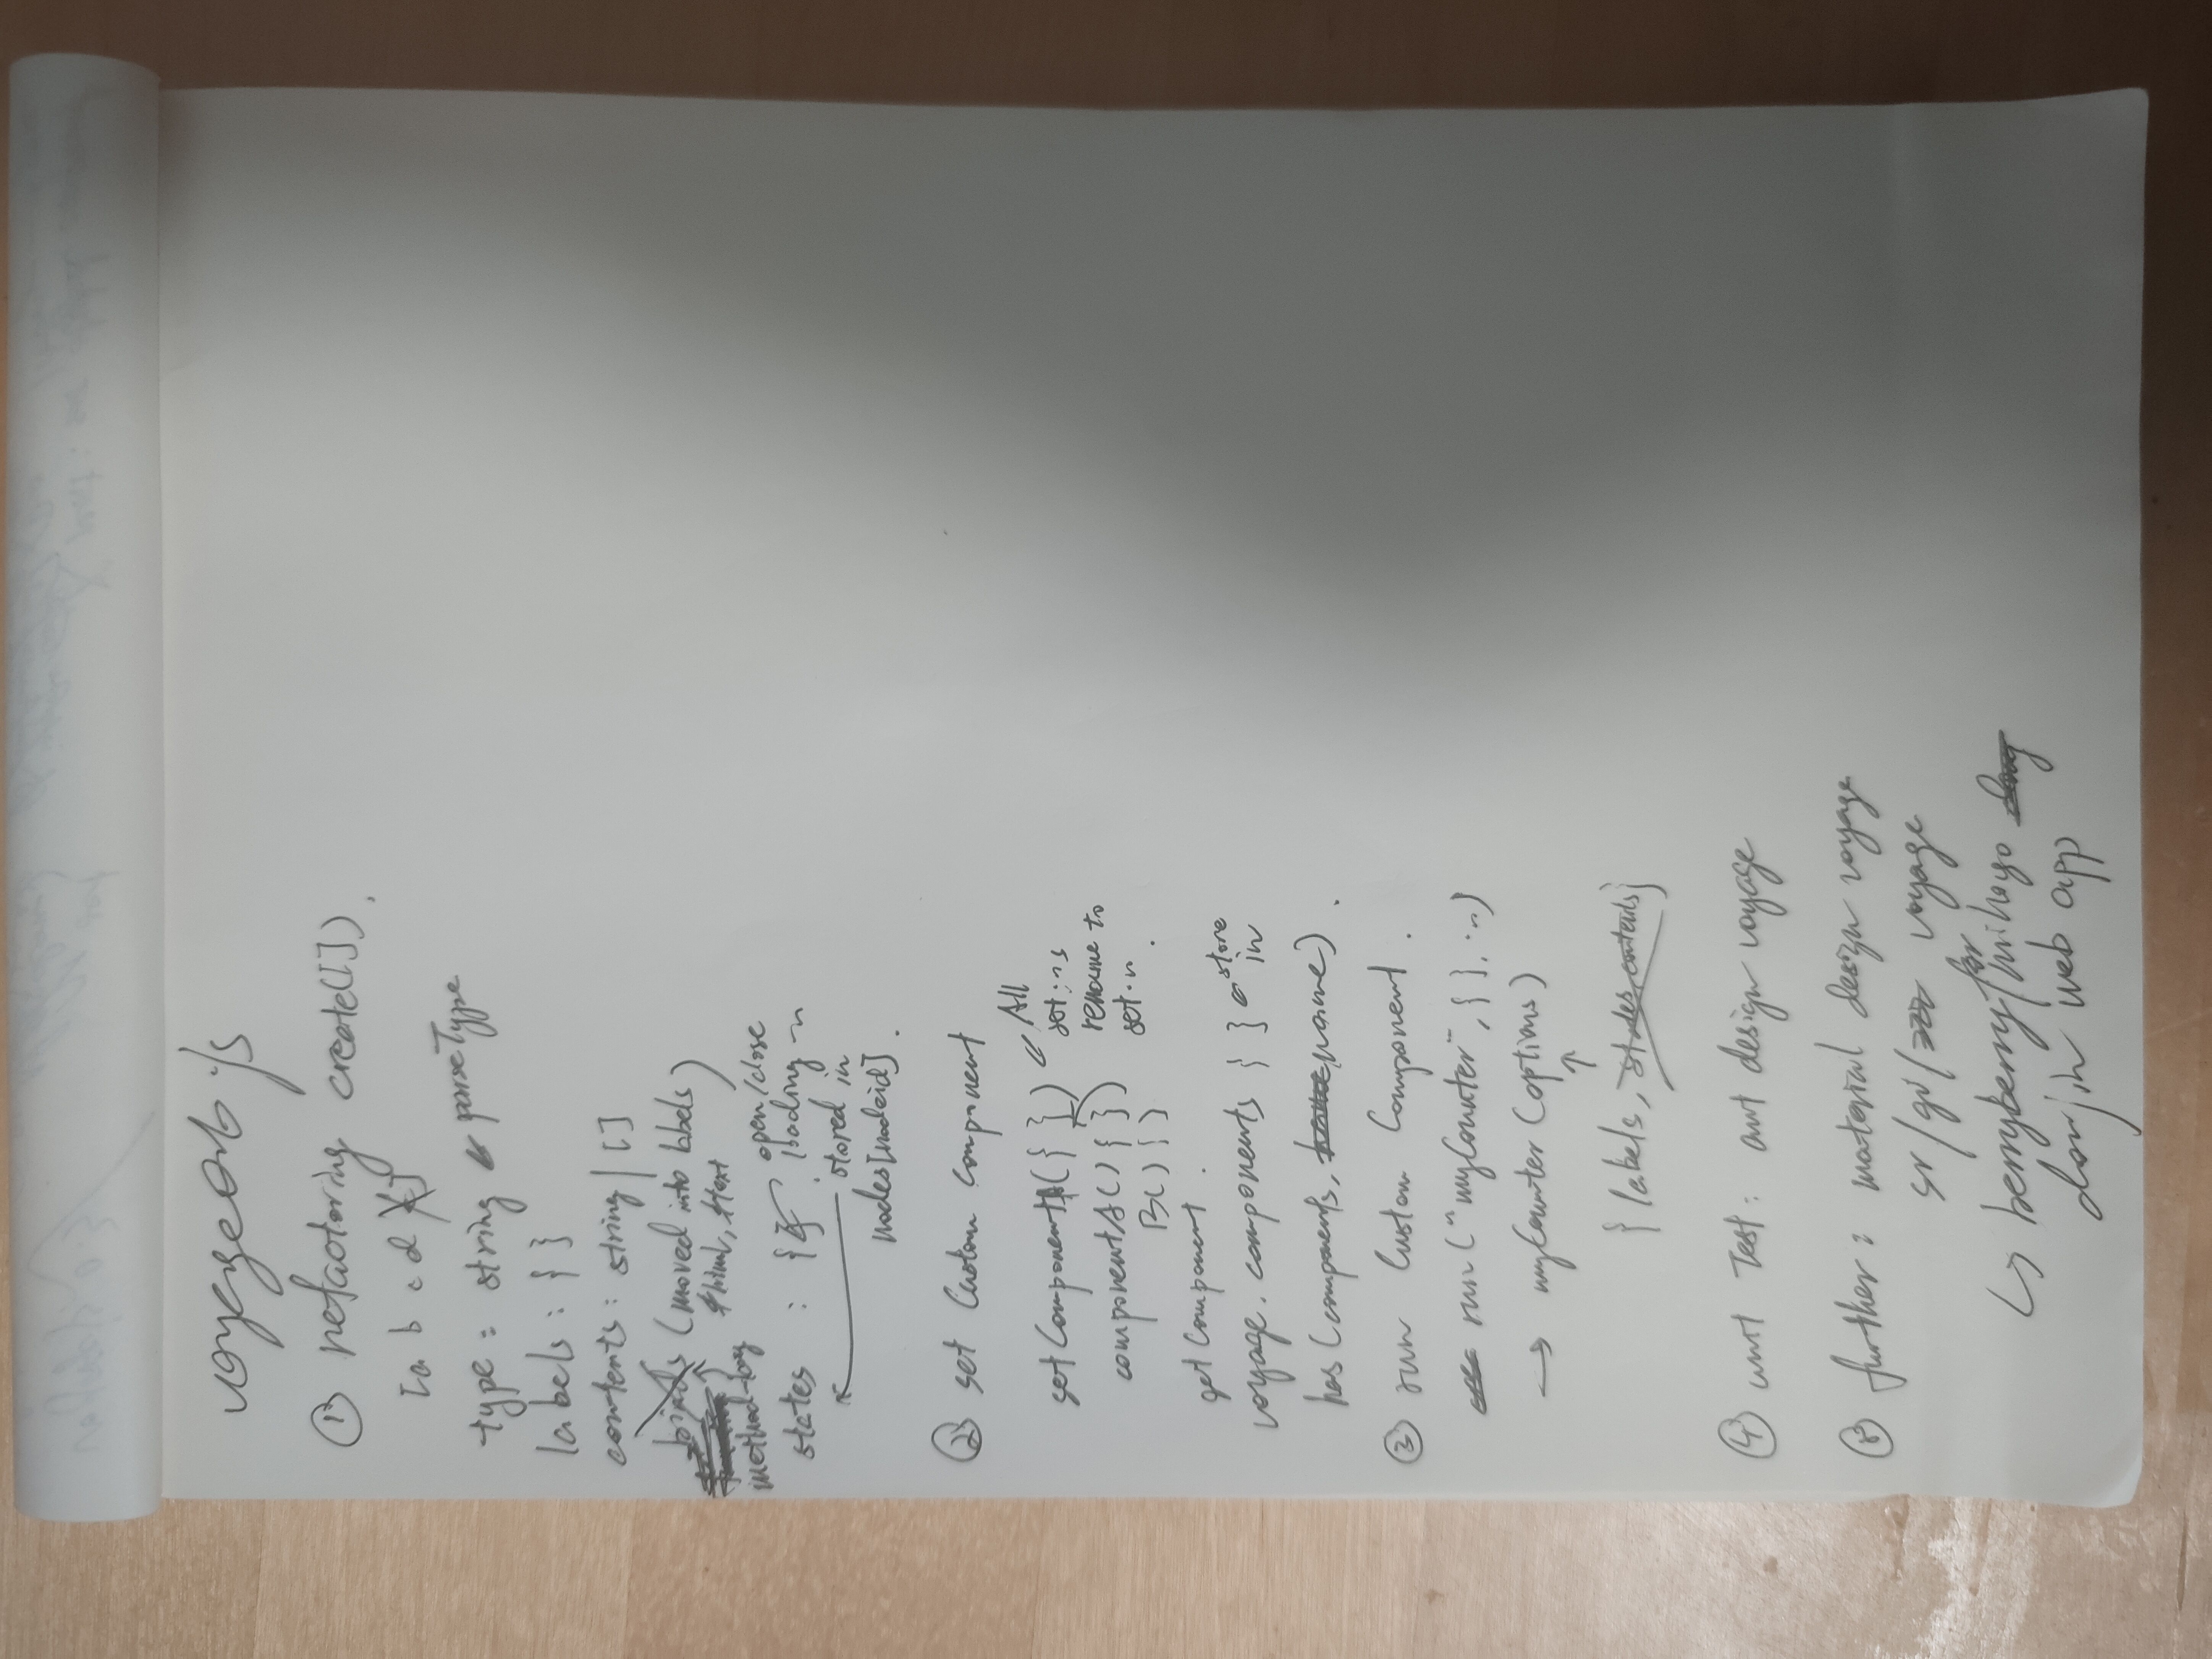 voyageorb.js
① refactoring create([]).
[a b c d e]
type : string ← parseType
labels : { }
contents : string | []
binds (moved into labels)
↑ $html, $text
method-
states : { } open/close
loading ~
← stored in
nodes[nodeid].
② set Custom component
setComponents({ }) ← All
set...s
componentA() { } rename to
set...
B() { }
getComponent.
voyage.components { } ← store
in
has (components, name).
③ run Custom Component.
run("myCounter", { }, ...)
→ myCounter (options)
↑
{ labels, states, contents}
④ unit Test : ant design voyage
⑤ further : material design voyage
sr/gi/zzz voyage
↳ berryberry/mihoyo
for
doujin web app